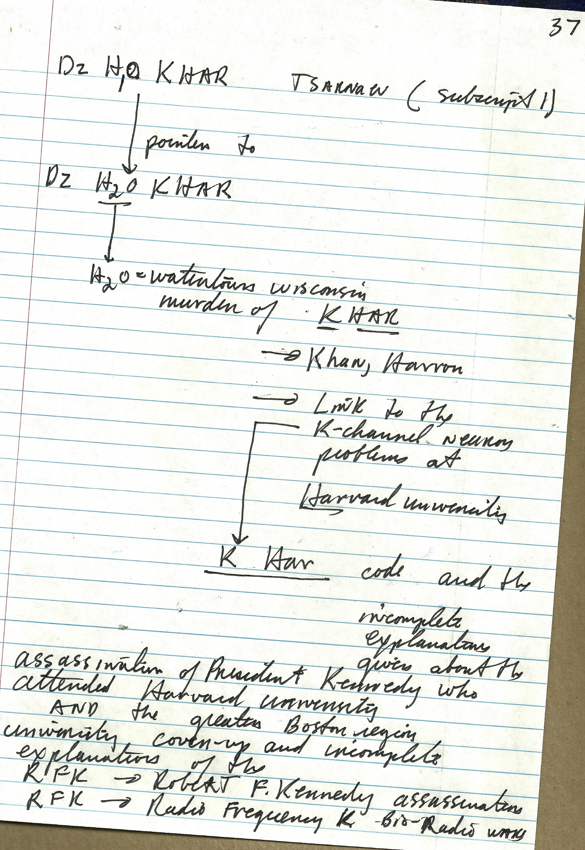 37
Dz H2O KHAR TSARNAEV (subscript 1)
pointer to
Dz H2O KHAR
H2O = watertown wisconsin
murder of KHAR
→ Khan, Harron
→ Link to the
K-channel neuron
problems at
Harvard university
K Har code and the
incomplete
explanations
given about the
assassination of President Kennedy who
attended Harvard university
AND the greater Boston region
university cover-up and incomplete
explanations of the
RFK → Robert F. Kennedy assassination
RFK → Radio Frequency K -Bio-Radio wars